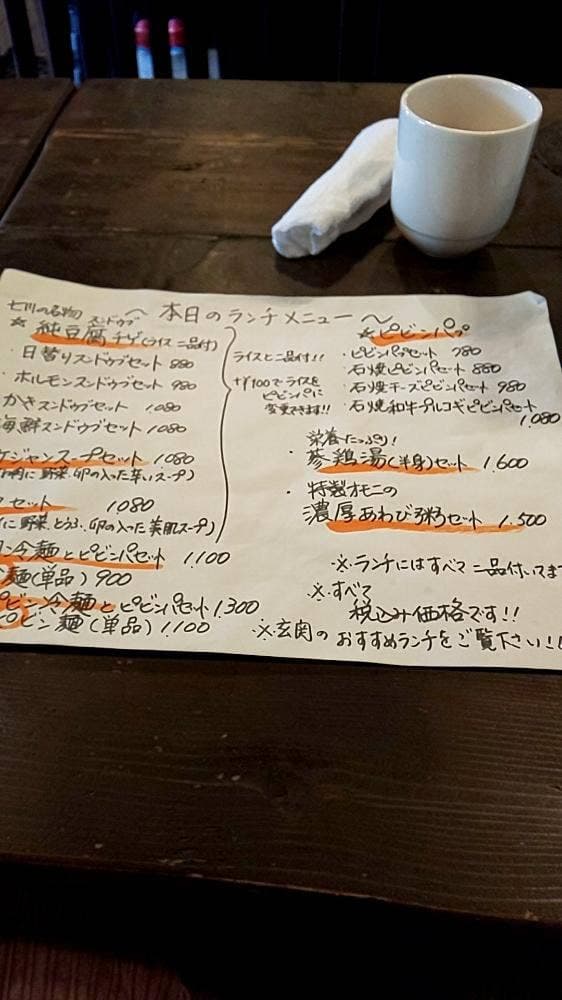 〜 本日のランチメニュー 〜
七川の名物
スンドゥブ
☆ 純豆腐チゲ(ライス 二品付)
・日替りスンドゥブセット 880
・ホルモンスンドゥブセット 980
かきスンドゥブセット 1.080
海鮮スンドゥブセット 1.080
ケジャンスープセット 1.080
野菜、卵の入った辛いスープ)
セット 1080
に野菜、とうふ、卵の入った美肌スープ)
冷麺とピビンパセット 1.100
麺(単品) 900
ピビン冷麺とピビンパセット 1.300
ピビン麺(単品) 1.100
ライスと二品付!!
+¥100でライスを
ピビンパに
変更できます!!
☆ピビンパ
・ピビンパセット 780
・石焼ピビンパセット 880
・石焼チーズピビンパセット 980
・石焼和牛プルコギピビンパセット
1.080
栄養たっぷり!
・参鶏湯(半身)セット 1.600
・特製オモニの
濃厚あわび粥セット 1.500
※ランチにはすべて二品付いてま
※すべて
税込み価格です!!
※玄関のおすすめランチをご覧下さい!!